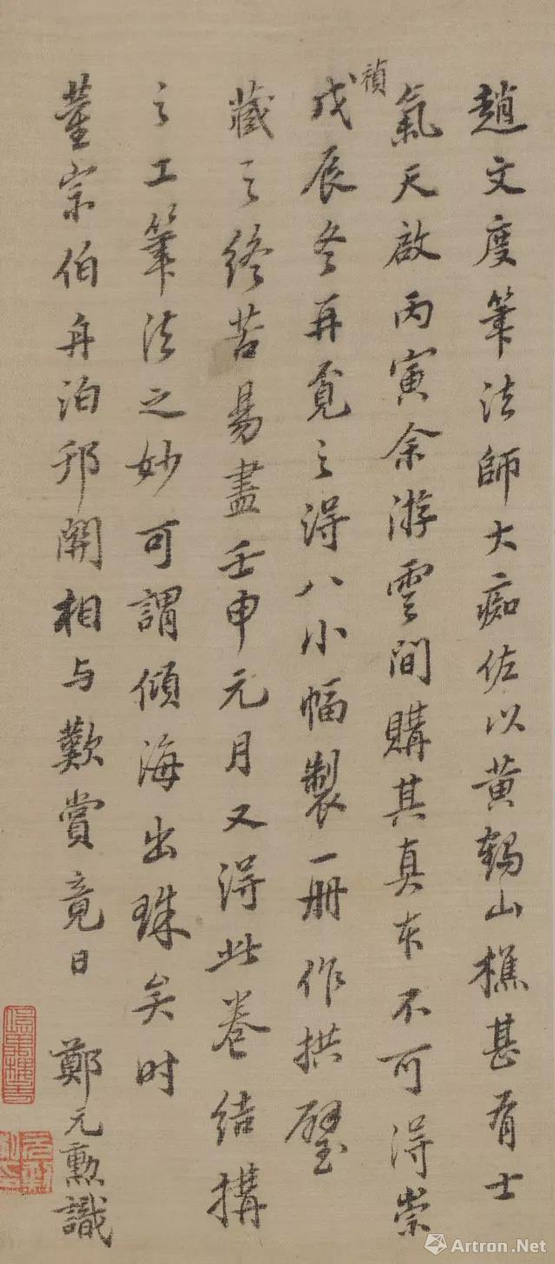 趙文度筆法師大痴佐以黄鶴山樵甚有士
氣天啟丙寅余游雲间購其真本不可得崇
禎
戊辰冬再覓之得八小幅製一册作拱璧
藏之終苦易盡壬申元月又得此卷结搆
之工筆法之妙可謂傾海出珠矣时
董宗伯舟泊邗關相与歎賞竟日 鄭元勲識
Artron.Net